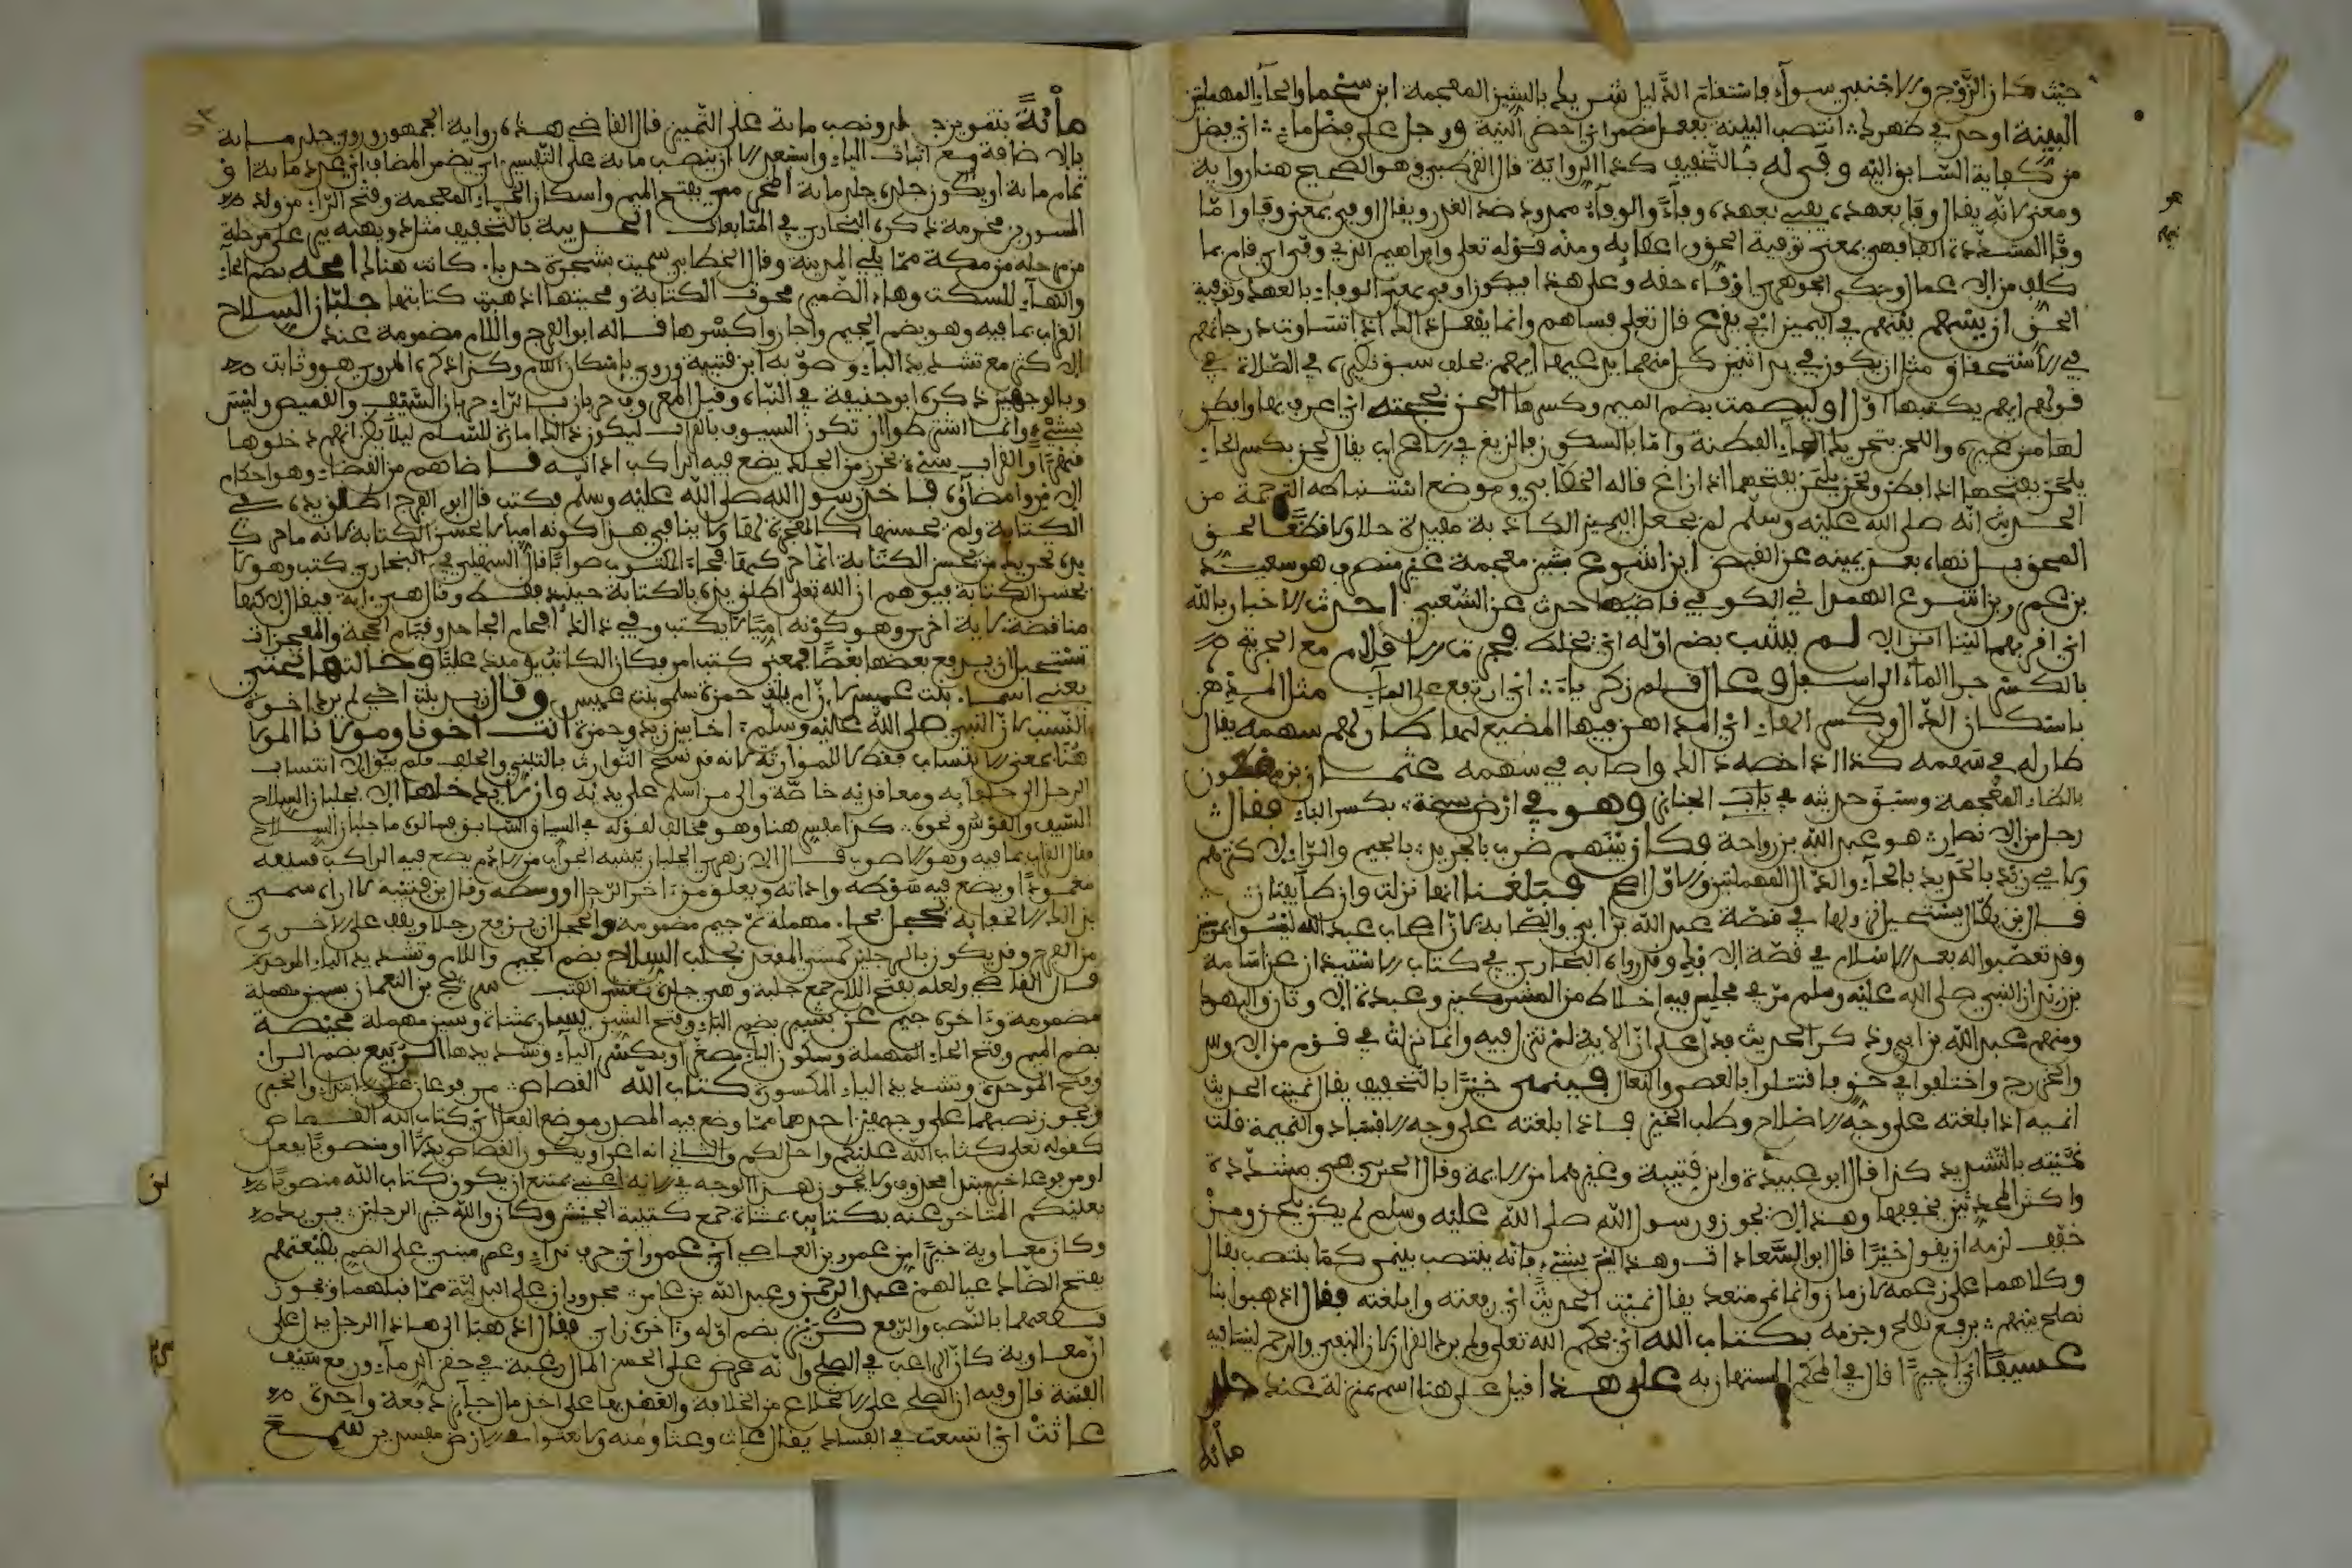 حيث كان الزوج والاجنبي سواء فاستقام الدليل شريك بالشين المعجمة ابن سحماء والحاء المهملتين
البينة او حد في ظهرك انتصب البينة بفعل مضمر اي احضر البينة ورجل على فضل ماء اي فضل
من كفاية السابق اليه وفى له بالتخفيف كذا الرواية قال القرطبي وهو الصحيح هنا رواية
ومعنى لانه يقال وفا بعهده يفي بعهده وفاء والوفاء ممدود ضد الغدر ويقال اوفى بمعنى وفا واما
وفا المشددة الفا فهي بمعنى توفية الحق واعطايه ومنه قوله تعلى وابراهيم الذي وفى اي قام بما
كلف من الاعمال وحكى الجوهري اوفاه حقه وعلى هذا فيكون اوفى بمعنى الوفاء بالعهد وتوفية
الحق ان يسهم بينهم في اليمين اي يقرع قال تعلى فساهم وانما يفعل ذلك اذا تساوت درجاتهم
في الاستحقاق مثل ان يكون في يد اثنين كل منهما يدعيها ايهم يحلف سبق نظيره في الصلاة في
قولهم ايهم يكتبها اول او ليصمت بضم الميم وكسرها الحن بحجته اي اعرف بها وافطن
لها من غيره واللحن بتحريك الحاء الفطنة واما بالسكون فالزيغ في الاعراب يقال لحن بكسر الحاء
يلحن بفتحها اذا فطن ولحن يلحن بفتحهما اذا زاغ قاله الخطابي وموضع استنباطه الترجمة من
الحديث انه صلى الله عليه وسلم لم يجعل اليمين الكاذبة مفيدة حلا ولا قطعا لحق
المحق بل نهاه بعد يمينه عن القبض ابن اشوع بشين معجمة غير منصرف هو سعيد
بن عمرو بن اشوع الهمداني الكوفي قاضيها حدث عن الشعبي احدث الاخبار بالله
اي اقربها الينا انزالا لم يشب بضم اوله اي يخلط فجرت الاقلام مع الجرية
بالكسر جرا الماء الى اسفل وعال قلم زكرياء اي ارتفع على الماء مثل المدهن
باسكان الدال وكسر الهاء اي المداهن فيها المضيع لها طار لهم سهمه يقال
طار له في سهمه كذا اذا خصه ذلك واصابه في سهمه عثمان بن مظعون
بالظاء المعجمة وسبق حديثه في باب الجنائز وهو في ارض سبخة بكسر الباء فقال
رجل من الانصار هو عبد الله بن رواحة فكان بينهم ضرب بالجريد بالجيم والراء للاكثرهم
ولابي زيد بالحديد بالحاء والدال المهملتين والاول اصح فبلغنا انها نزلت وان طائفتان
قال ابن بطال يستحيل نزولها في قصة عبد الله بن ابي والصحابة لان اصحاب عبد الله ليسوا بمومنين
وقد تعصبوا له بعد الاسلام في قصة الافك وقد رواه البخاري في كتاب الاستيذان عن اسامة
بن زيد ان النبي صلى الله عليه وسلم مر في مجلس فيه اخلاط من المشركين وعبدة الاوثان واليهود
ومنهم عبد الله بن ابي وذكر الحديث فدل على ان الاية لم تنزل فيه وانما نزلت في قوم من الاوس
والخزرج واختلفوا في حق فاقتتلوا بالعصي والنعال فينمي خيرا بالتخفيف يقال نميت الحديث
انميه اذا بلغته على وجه الاصلاح وطلب الخير فاذا بلغته على وجه الافساد والنميمة قلت
نميته بالتشديد كذا قال ابو عبيدة وابن قتيبة وغيرهما من الايمة وقال الحربي هي مشددة
واكثر المحدثين يخففها وهذا لا يجوز ورسول الله صلى الله عليه وسلم لم يكن يلحن ومن
خفف لزمه ان يقول خيرا قال ابو السعادات وهذا ليس بشيء فانه ينتصب بينمي كما ينتصب بقال
وكلاهما على زعمه لازمان وانما نمى متعد يقال نميت الحديث اي رفعته وابلغته فقال اذهبوا بنا
نصلح بينهم برفع نصلح وجزمه بكتاب الله اي بحكم الله تعلى ولم يرد القران لان النفي والرجم ليسا فيه
عسيفا اي اجيرا قال في المحكم المستهان به على هذا قيل على هنا اسم بمنزلة عند جلد
مائة
مائة بتنوين جلد ونصب ماية على التمييز قال القاضي هذه رواية الجمهور وروي جلد ماية
بالاضافة مع اثبات الهاء واستبعد الا ان ينصب ماية على التفسير اي يضمر المضاف اي عدد ماية او
تمام ماية او يكون جلده جلد ماية المخرمي بفتح الميم واسكان الخاء المعجمة وفتح الراء من ولد
المسور بن مخرمة ذكره البخاري في المتابعات الحديبية بالتخفيف مثل دويهية بير على مرحلة
من مكة مما يلي المدينة وقال الخطابي سميت بشجرة حدباء كانت هنالك امحه بضم الحاء
والهاء للسكت وهاء الضمير محوت الكتابة ومحيتها اذهبت كتابتها جلبان السلاح
القراب بما فيه وهو بضم الجيم واجازوا كسرها قاله ابو الفرج واللام مضمومة عند
الاكثر مع تشديد الباء وصوبه ابن قتيبة وروي باسكان اللام وكذا ذكره الهروي هو وثابت
وبالوجهين ذكره ابو حنيفة في النبات
بشيء وانما اشترطوا ان تكون السيوف بالقراب ليكون ذلك امارة للسلم ليلا يظن انهم دخلوها
قهرا والقراب شيء يخرز من الجلد يضع فيه الراكب اداته قاضاهم من القضاء وهو احكام
الامر وامضاؤه فاخذ رسول الله صلى الله عليه وسلم فكتب قال ابو الفرج اطلاق يده في
الكتابة ولم يحسنها كالمعجزة لها ولا ينافي هذا كونه اميا لا يحسن الكتابة لانه ما حرك
يده تحريك من يحسن الكتابة انما حركها فجاء المكتوب صوابا قال السهيلي في البخاري كتب وهو لا
يحسن الكتابة فيوهم ان الله تعلى اطلق يده بالكتابة حينيذ فقط وقال هي اية فيقال لا لكنها
مناقضة لاية اخرى وهو كونه اميا لا يكتب وفي ذلك افحام الجاحد وقيام الحجة والمعجزات
تستحيل ان يدفع بعضها بعضا فمعنى كتب امر فكان الكاتب يوميذ عليا وخالتها تحتي
يعني اسماء بنت عميس لان ام بنت حمزة سلمى بنت عميس وقال زيد بنت اخي لم يرد اخوة
النسب لان النبي صلى الله عليه وسلم اخا بين زيد وحمزة انت اخونا ومولانا المولى
هنا بمعنى الانتساب فقط لا للموارثة لانه قد نسخ التوارث بالتبني والحلف فلم يبق الا انتساب
الرجل الى حلفايه ومعاقديه خاصة والى من اسلم على يديه وان لا يدخلها الا بجلبان السلاح
السيف والقوس ونحوه كذا مفسر هنا وهو مخالف لقوله في السياق السابق فسالوه ما جلبان السلاح
فقال القراب بما فيه وهو الاصوب قال الازهري الجلبان يشبه الجراب من الادم يضع فيه الراكب سيفه
مغمودا ويضع فيه سوطه واداته ويعلقه من اخرة الرحل او وسطه وقال ابن قتيبة لا اراه سمي
بذلك الا لجفايه يحجل بحاء مهملة ثم جيم مضمومة والحجل ان يرفع رجلا ويقف على الاخرى
من الفرح وقد يكون بالرجلين كمشي المقيد بجلب السلاح بضم الجيم واللام وتشديد الباء الموحدة
قال القاضي ولعله بفتح اللام جمع جلبة وهي جلدة تغشي القتب سريج بن النعمان بسين مهملة
مضمومة واخره جيم عن بشير بضم الباء وفتح الشين يسار بمثناة وسين مهملة محيصة
بضم الميم وفتح الحاء المهملة وسكون الياء مصغر او بكسر الياء وتشديدها الربيع بضم الراء
وفتح الموحدة وتشديد الياء المكسورة كتاب الله القصاص مرفوعان على الابتداء والخبر
ويجوز نصبهما على وجهين احدهما مما وضع فيه المصدر موضع الفعل اي كتاب الله القصاص
كقوله تعلى كتاب الله عليكم واحل لكم والثاني انه اغراء ويكون القصاص بدلا او منصوبا بفعل
او مرفوعا خبر مبتدا محذوف ولا يجوز هذا الوجه في الاية اعني يمتنع ان يكون كتاب الله منصوبا
بعليكم المتاخر عنه بكتايب بمثناة جمع كتيبة الجيش وكان والله خير الرجلين يريد
وكان معاوية خيرا من عمرو بن العاصي اي عمرو اي حرف نداء وعمر مبني على الضم بضيعتهم
بفتح الضاد عيالهم عبد الرحمن وعبد الله بن عامر مجروران على البدلية مما قبلهما ويجوز
قطعهما بالنصب والرفع كريز بضم اوله واخره زاي فقال اذهبا الى هذا الرجل يدل على
ان معاوية كان الراغب في الصلح وانه عرض على الحسن المال رغبة في حقن الدماء ورفع سيف
الفتنة قال وفيه ان الصلح على الانخلاع من الخلافة والعهد بها على اخذ مال جايز دفعة واحدة
عاثت اي اتسعت في الفساد يقال عاث وعثا ومنه ولا تعثوا في الارض مفسدين تسمع